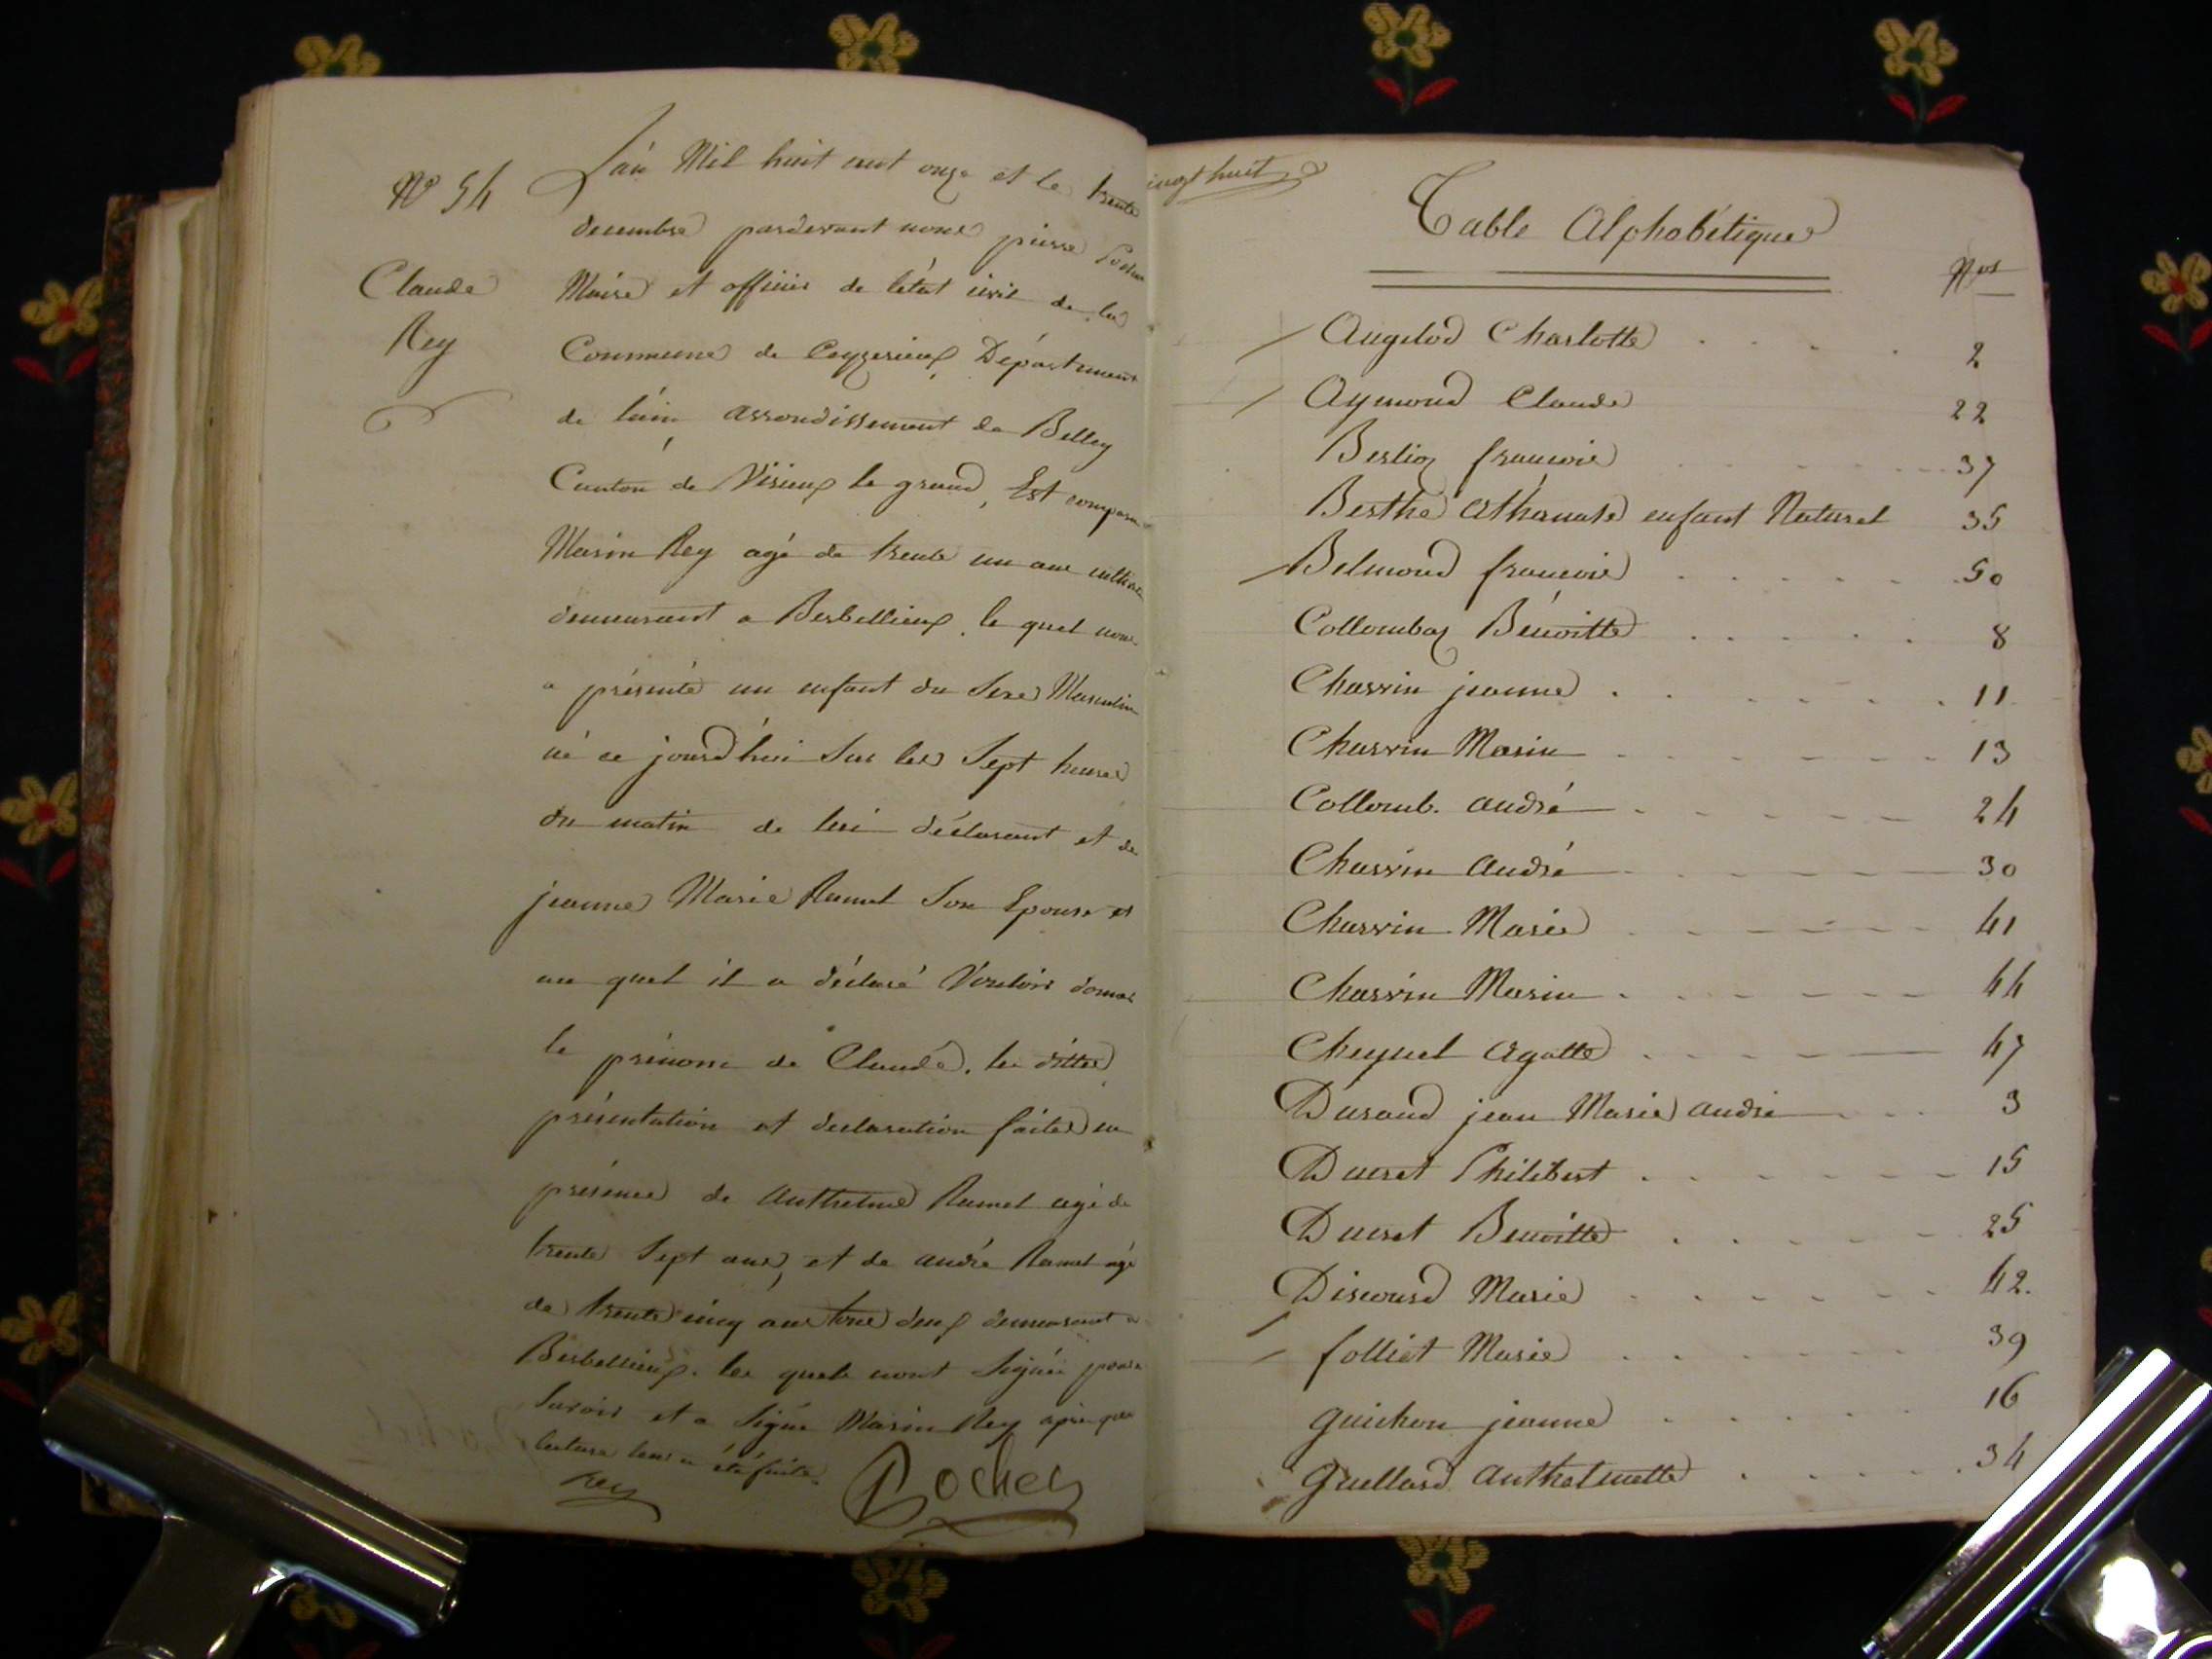 N° 54
Claude
Rey
L'an Mil huit cent onze et le trente
decembre pardevant nous pierre
Maire et officier de l'état civil de la
Commune de Ceyzerieux Département
de l'ain arrondissement de Belley
Canton de Virieux le grand, Est comparu
Marin Rey agé de trente un ans
demeurant a Berbellieux. le quel nous
a présenté un enfant du Sexe Masculin
né ce jourd'hui Sur les Sept heures
du matin de lui déclarant et de
jeanne Marie Ramel Son Epouse et
au quel il a déclaré Vouloir donner
le prénom de Claude. les dittes
présentation et declaration faites en
présence de Anthelme Ramel agé de
trente Sept ans, et de andré Ramel agé
de trente cinq ans tous deux demeurant a
Berbellieux. les quels n'ont Signé pour
Savoir et a Signé Marin Rey après que
lecture leur a été faite.
rey
Pochet
vingt huit
Table Alphabétique
Nos
Augelod Charlotte 2
Aymond Claude 22
Berlioz francois 37
Berthe Athanase enfant Naturel 35
Belmond francois 50
Collombaz Bénoitte 8
Charvin jeanne 11
Charvin Marin 13
Collomb. andré 24
Charvin andré 30
Charvin Marie 41
Charvin Marin 44
Cheynel Agatte 47
Durand jean Marie andré 3
Ducret Philibert 15
Ducret Benoitte 25
Discourd Marie 42.
folliet Marie 39
guichon jeanne 16
guillard anthelmette 34